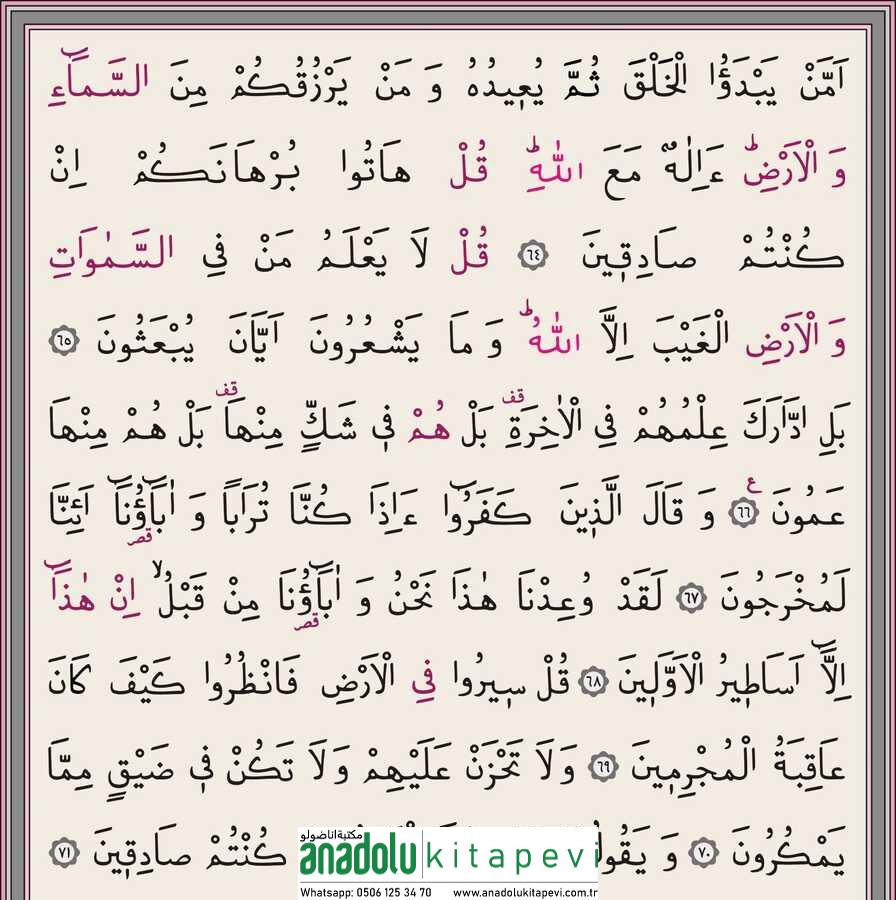 اَمَّنْ يَبْدَؤُا الْخَلْقَ ثُمَّ يُعٖيدُهُ وَ مَنْ يَرْزُقُكُمْ مِنَ السَّمَٓاءِ
وَ الْاَرْضِؕ ءَاِلٰهٌ مَعَ اللّٰهِؕ قُلْ هَاتُوا بُرْهَانَكُمْ اِنْ
كُنْتُمْ صَادِقٖينَ ٦٤ قُلْ لَا يَعْلَمُ مَنْ فِي السَّمٰوَاتِ
وَ الْاَرْضِ الْغَيْبَ اِلَّا اللّٰهُؕ وَ مَا يَشْعُرُونَ اَيَّانَ يُبْعَثُونَ ٦٥
بَلِ ادَّارَكَ عِلْمُهُمْ فِي الْاٰخِرَةِ قف بَلْ هُمْ فٖي شَكٍّ مِنْهَا قف بَلْ هُمْ مِنْهَا
عَمُونَ ع ٦٦ وَ قَالَ الَّذٖينَ كَفَرُٓوا ءَاِذَا كُنَّا تُرَاباً وَ اٰبَٓاؤُنَٓا قصر اَئِنَّا
لَمُخْرَجُونَ ٦٧ لَقَدْ وُعِدْنَا هٰذَا نَحْنُ وَ اٰبَٓاؤُنَا قصر مِنْ قَبْلُۙ اِنْ هٰذَٓا
اِلَّٓا اَسَاطٖيرُ الْاَوَّلٖينَ ٦٨ قُلْ سٖيرُوا فِي الْاَرْضِ فَانْظُرُوا كَيْفَ كَانَ
عَاقِبَةُ الْمُجْرِمٖينَ ٦٩ وَلَا تَحْزَنْ عَلَيْهِمْ وَلَا تَكُنْ فٖي ضَيْقٍ مِمَّا
يَمْكُرُونَ ٧٠ وَ كُنْتُمْ صَادِقٖينَ ٧١
مكتبة اناضولو
anadolu kitapevi
Whatsapp: 0506 125 34 70 www.anadolukitapevi.com.tr